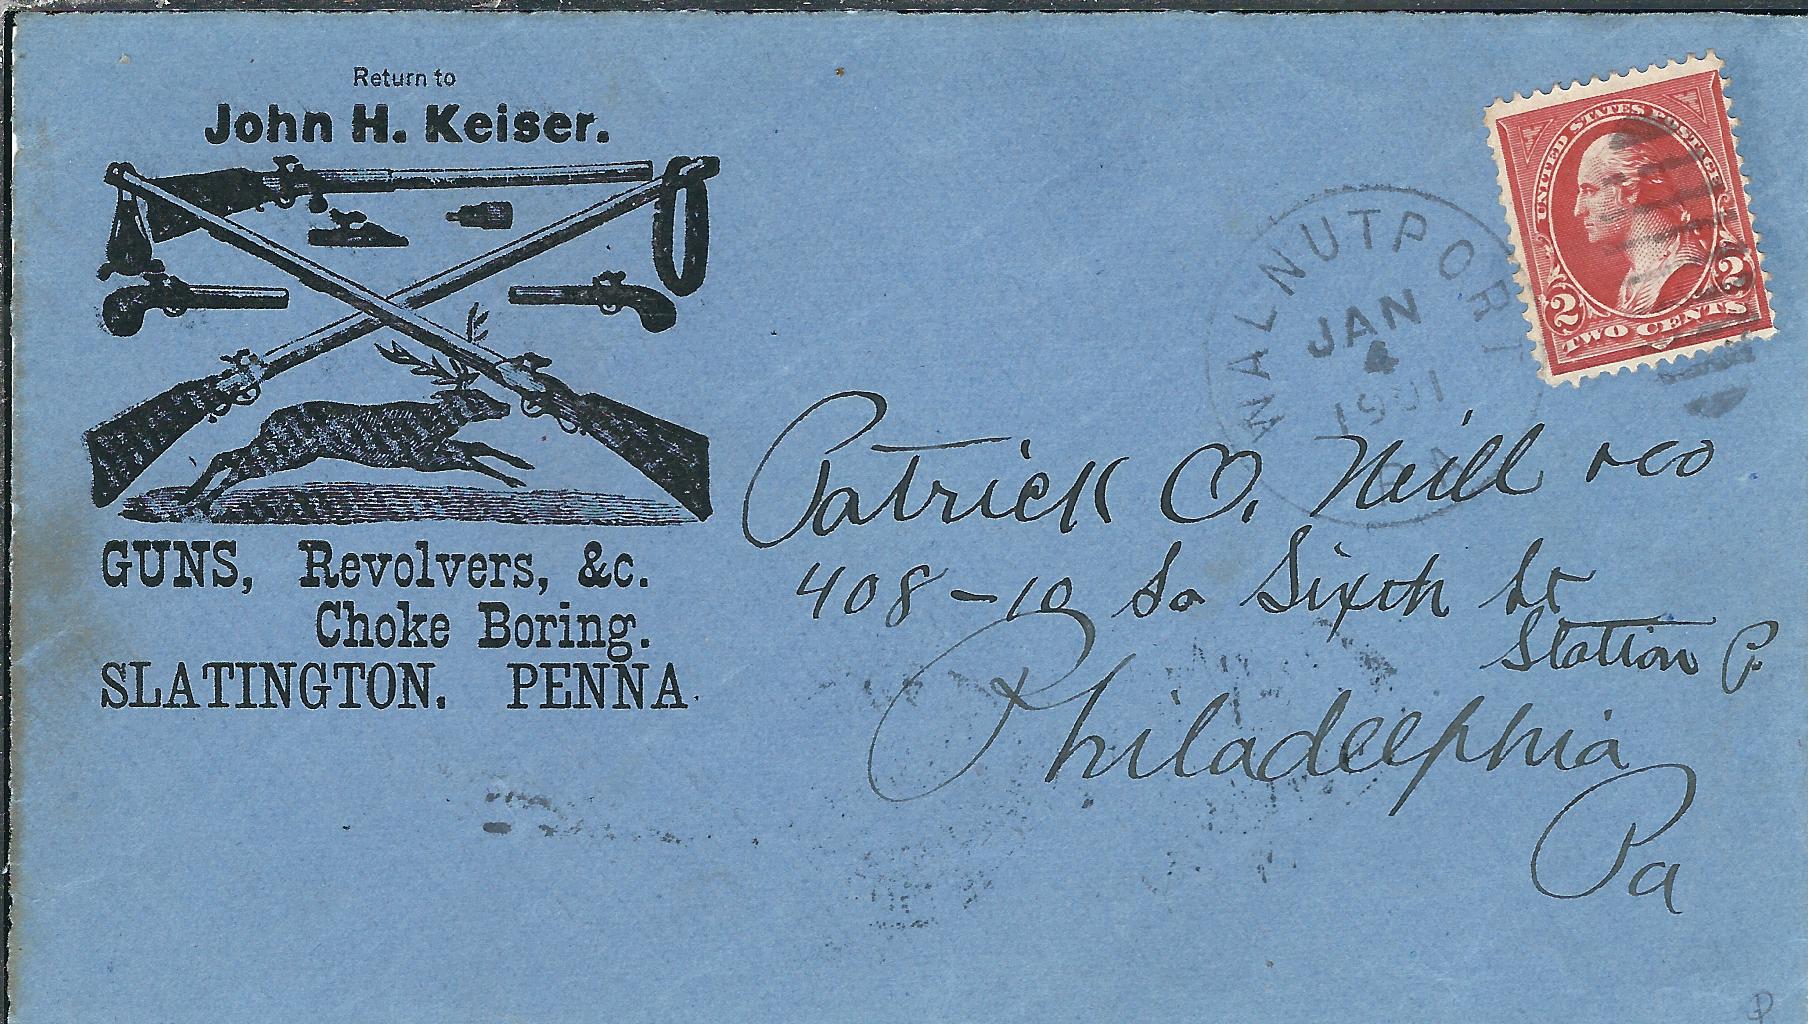 Return to
John H. Keiser.
GUNS, Revolvers, &c.
Choke Boring.
SLATINGTON. PENNA.
UNITED STATES POSTAGE
2 2
TWO CENTS
WALNUTPORT
JAN
4
1901
PA
Patrick O. Neill & Co
408-10 So Sixth St
Station P.
Philadelphia
Pa